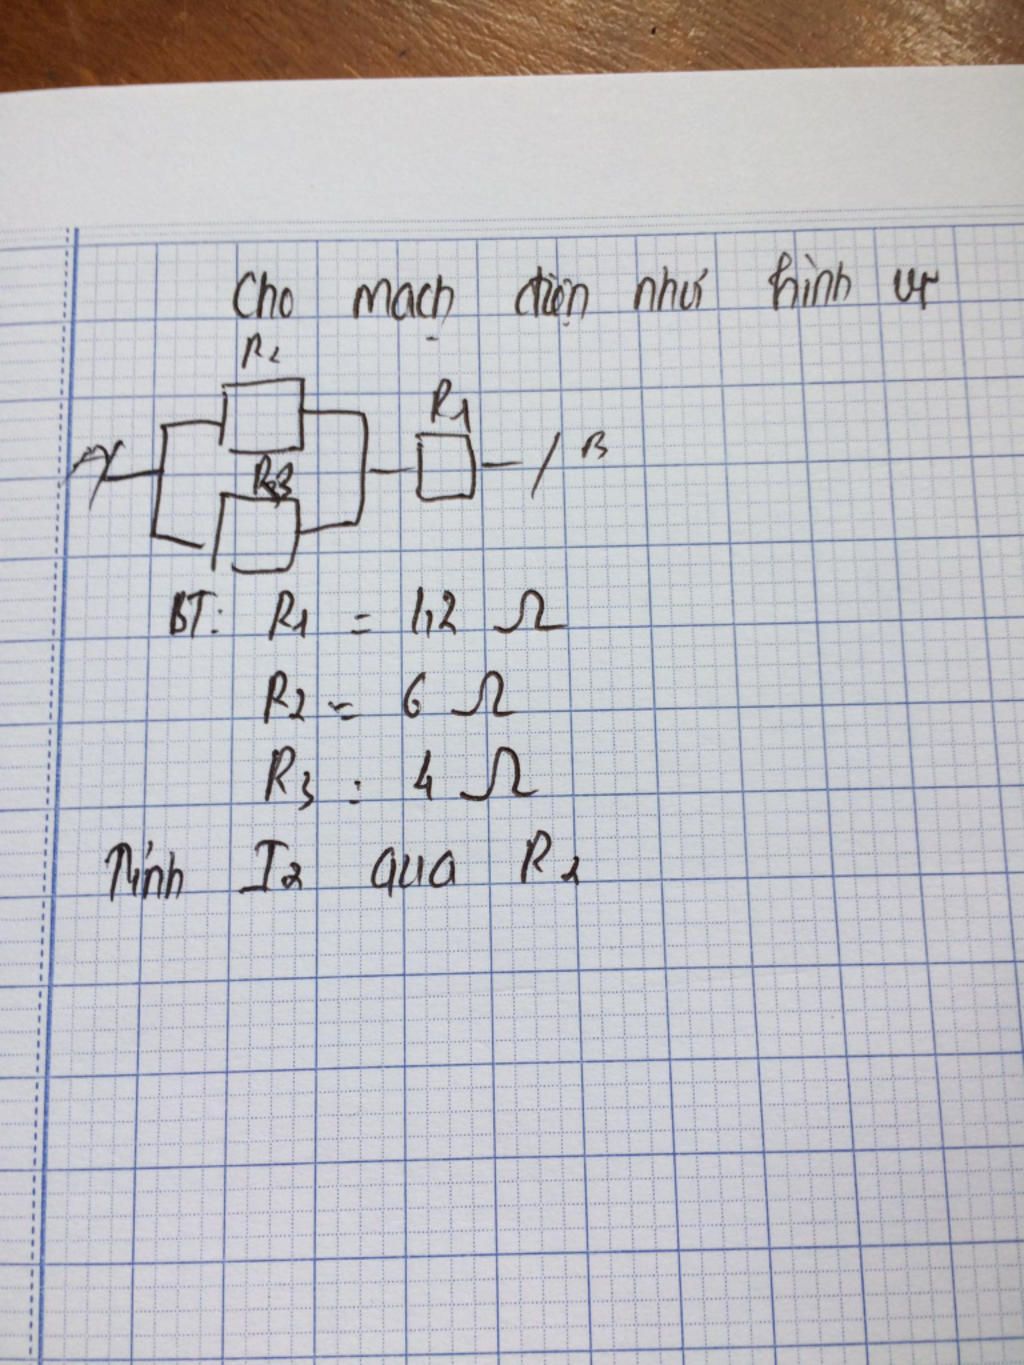 Cho mạch điện như hình vẽ
R2
R1
B
R3
BT: R1 = 1,2 Ω
R2 = 6 Ω
R3 : 4 Ω
Tính I2 qua R2